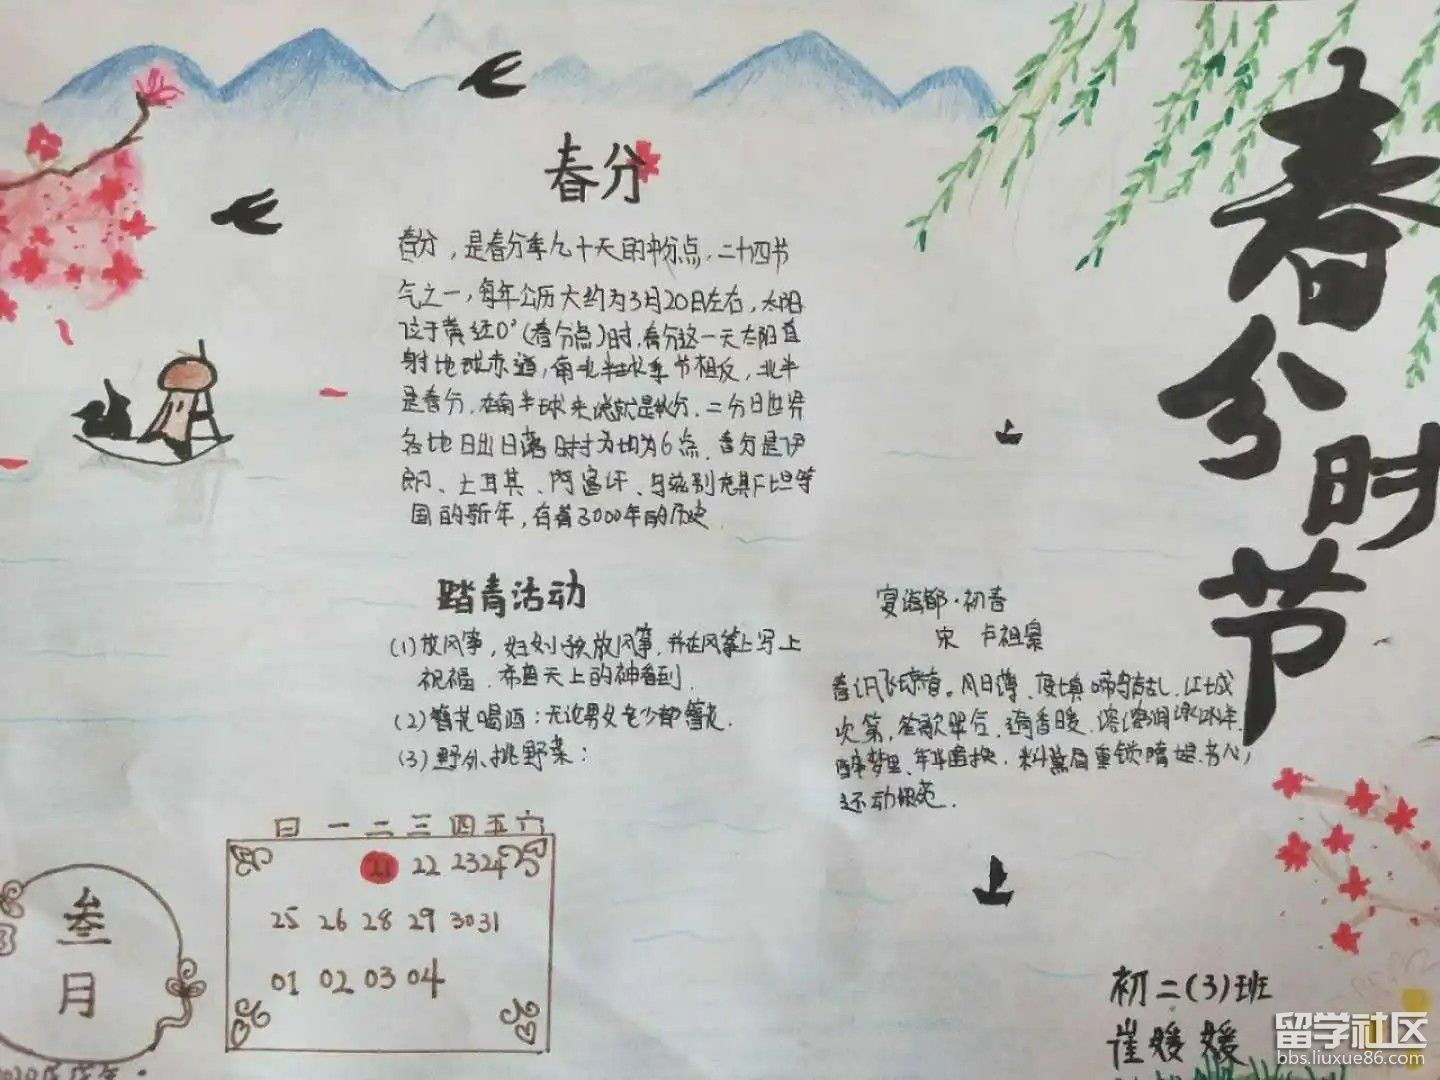 春分时节
春分
春分，是春分季九十天的中分点，二十四节
气之一，每年公历大约为3月20日左右，太阳
位于黄经0°（春分点）时，春分这一天太阳直
射地球赤道，南北半球季节相反，北半
是春分，在南半球来说就是秋分，二分日世界
各地日出日落时才为均为6点，春分是伊
朗、土耳其、阿富汗、乌兹别克斯坦等
国的新年，有着3000年的历史
踏青活动
(1)放风筝，妇女小孩放风筝，并在风筝上写上
祝福，希望天上的神看到。
(2)簪花喝酒：无论男女老少都簪花。
(3)野外挑野菜：
宴清都·初春
宋 卢祖皋
春讯飞琼管。风日薄、度墙啼鸟声乱，江城
次第，笙歌翠合，绮香暖，溶溶涧渌冰泮，
醉梦里、年华暗换，料黛眉重锁隋堤，芳心
还动梁苑.
日 一 二 三 四 五 六
21 22 23 24
25 26 28 29 30 31
01 02 03 04
叁
月
初二(3)班
崔媛媛
留学社区
bbs.liuxue86.com